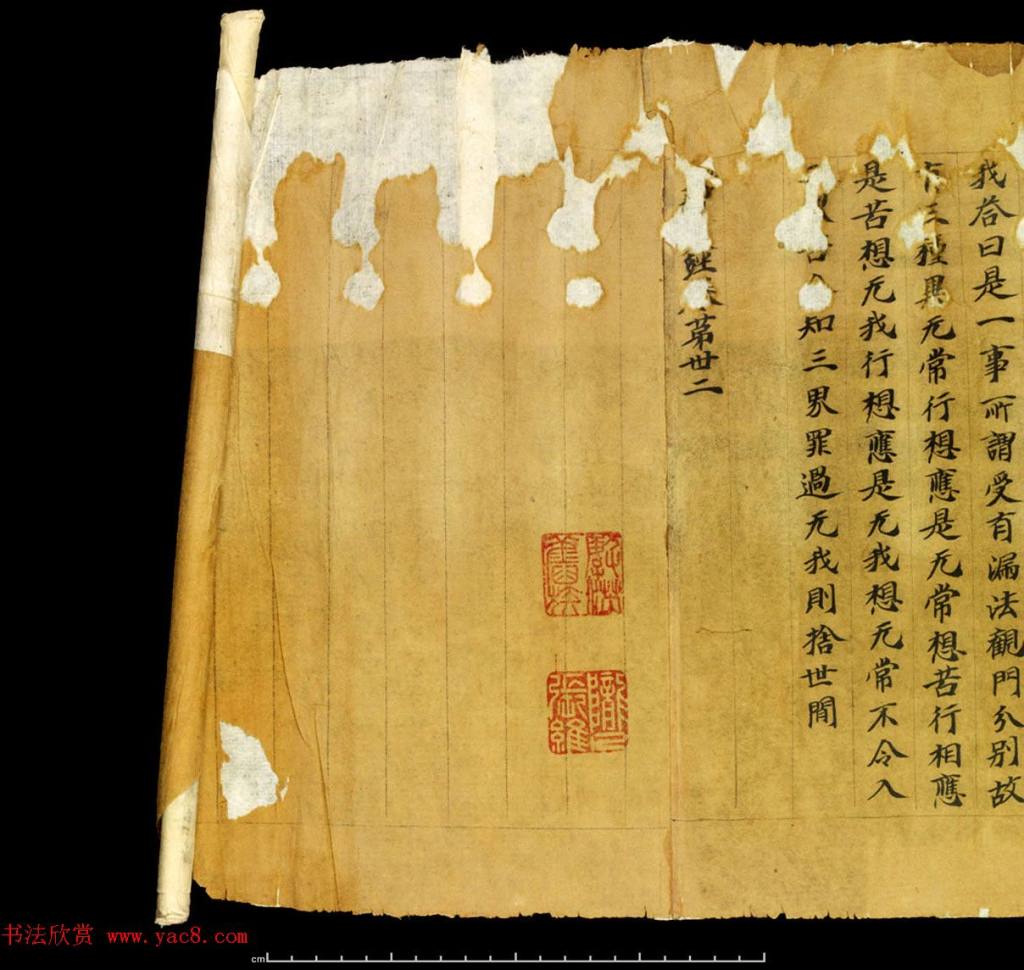 我荅曰是一事所謂受有漏法觀門分別故
有三種異无常行想應是无常想苦行相應
是苦想无我行想應是无我想无常不令入
知三界罪過无我則捨世間
經卷第卅二
書法欣赏 www.yac8.com
cm